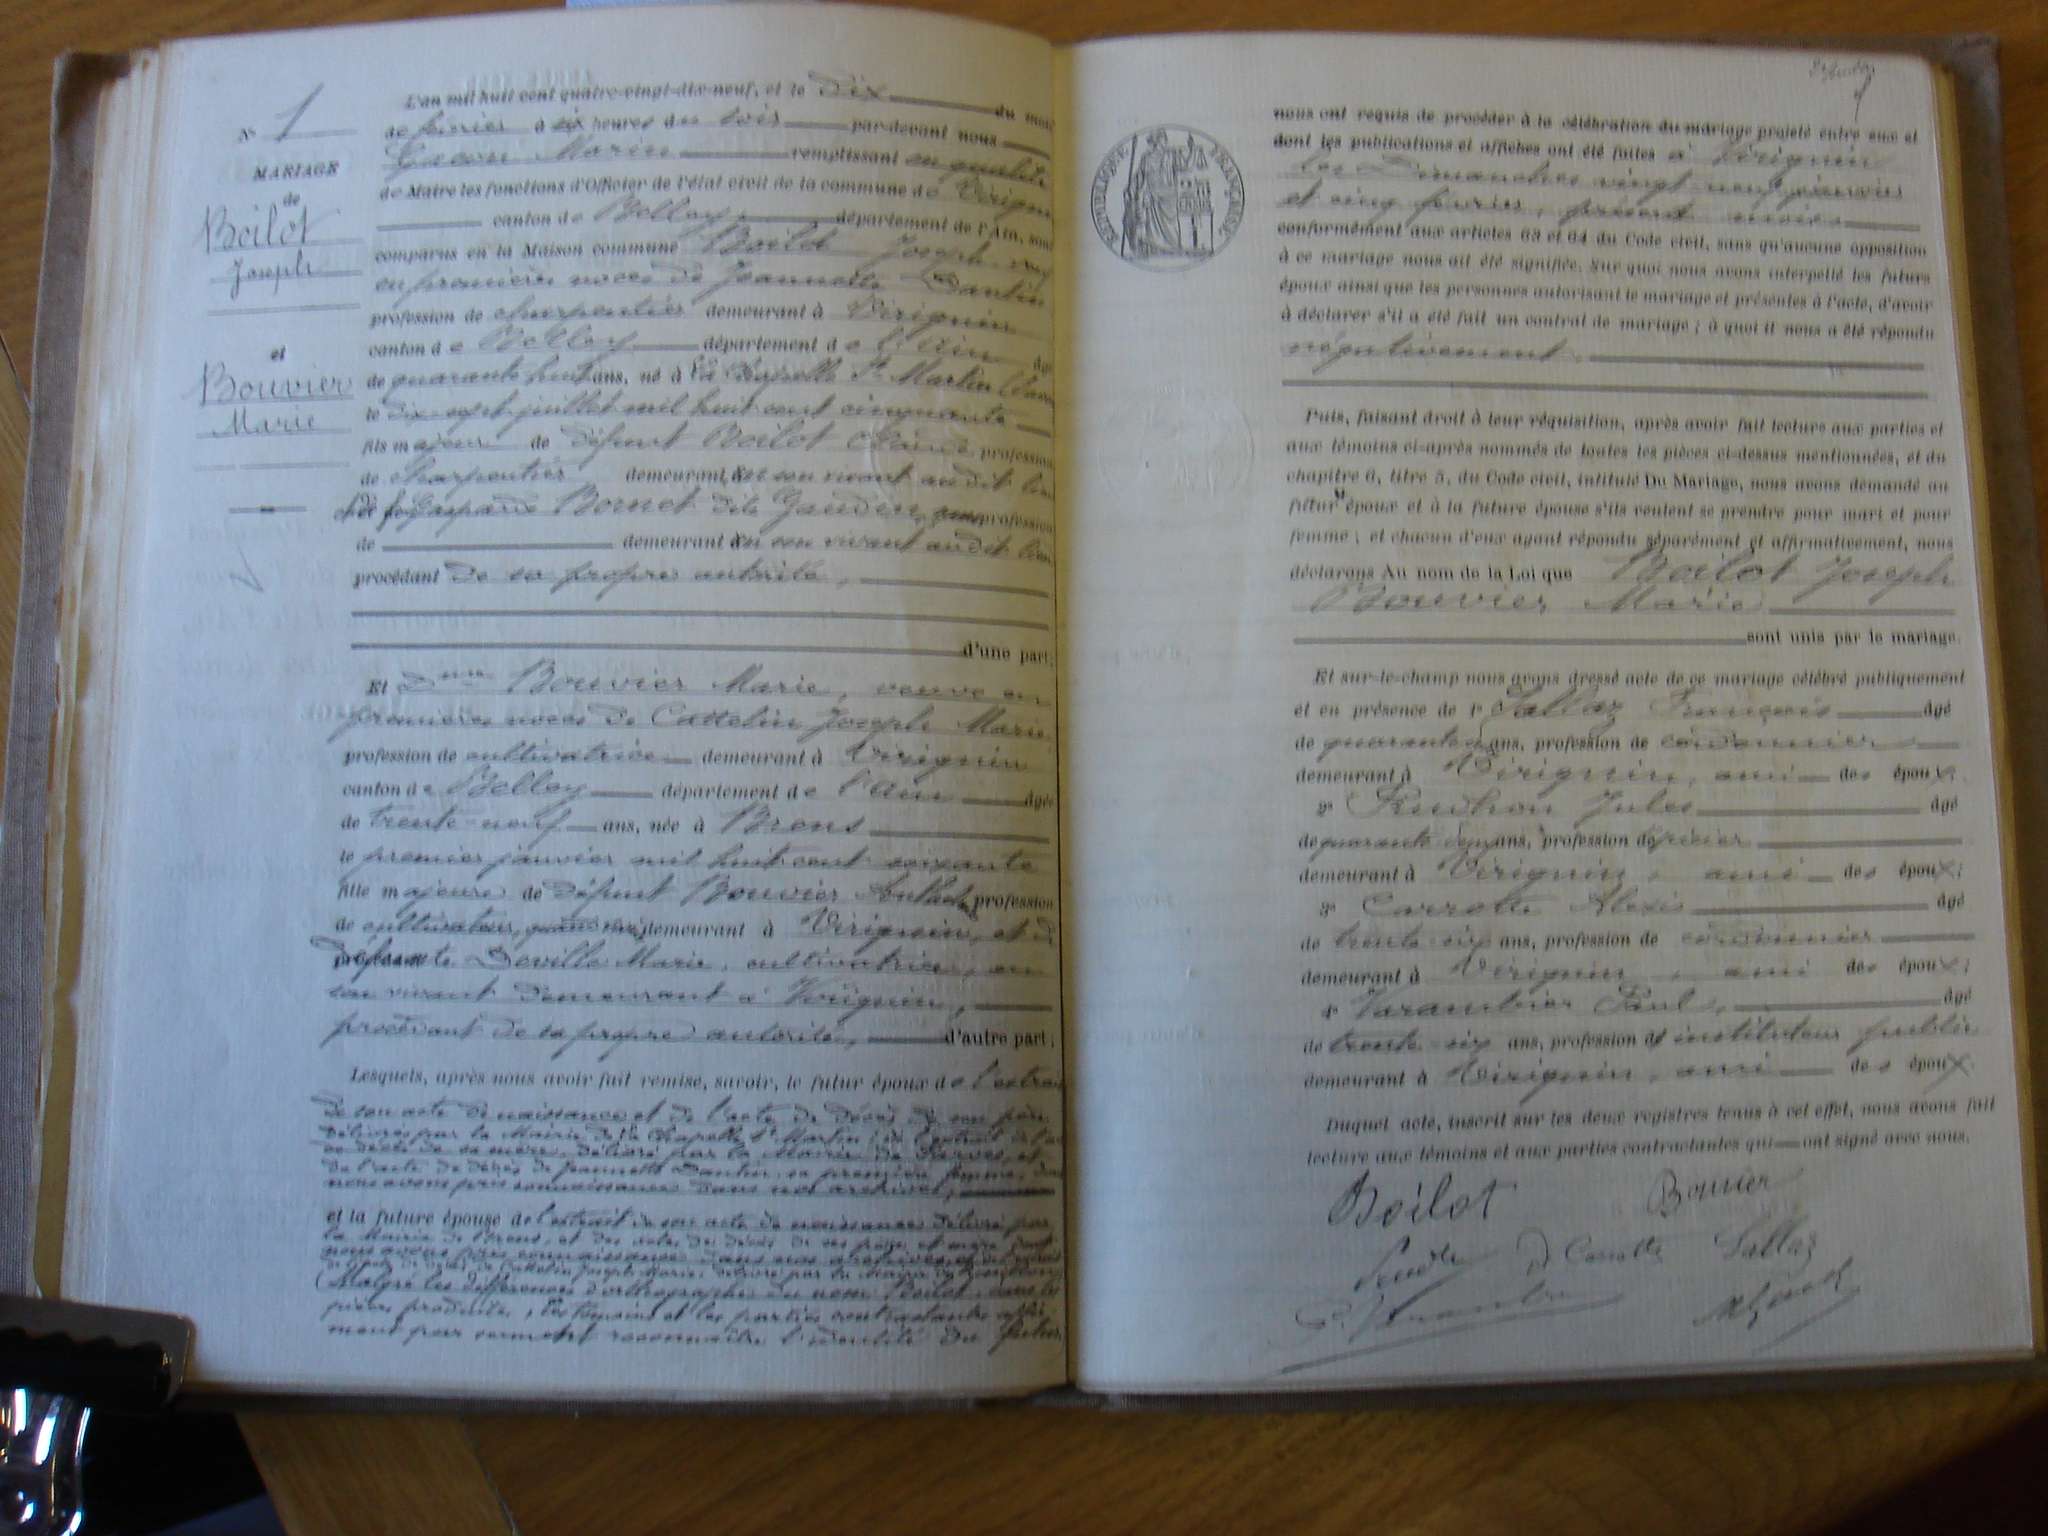 N° 1
MARIAGE
de
Boilot
Joseph
et
Bouvier
Marie
L'an mil huit cent quatre-vingt-dix-neuf, et le dix du mois
de février à six heures du soir par-devant nous
Morin remplissant en qualité
de Maire les fonctions d'Officier de l'état civil de la commune de Virignin
canton de Belley, département de l'Ain, sont
comparus en la Maison commune Boilot Joseph veuf
en premières noces de Jeannette Dantin
profession de charpentier demeurant à Virignin
canton de Belley département de l'Ain âgé
de quarante huit ans, né à La Chapelle St Martin
le dix-sept juillet mil huit cent cinquante
fils majeur de défunt Boilot Claude profession
de Charpentier demeurant en son vivant au dit lieu
et de Gasparde Bornet dite Gaudin, profession
de demeurant en son vivant au dit lieu
procédant de sa propre autorité,
d'une part;
Et Dme Bouvier Marie, veuve en
premières noces de Cattelin Joseph Marie
profession de cultivatrice demeurant à Virignin
canton de Belley département de l'Ain âgée
de trente-neuf ans, née à Brens
le premier janvier mil huit cent soixante
fille majeure de défunt Bouvier profession
de cultivateur, demeurant à Virignin, et de
défunte Deville Marie, cultivatrice, en
son vivant demeurant à Virignin,
procédant de sa propre autorité, d'autre part;
Lesquels, après nous avoir fait remise, savoir, le futur époux de l'extrait
de son acte de naissance et de l'acte de décès de son père
délivrés par la Mairie de La Chapelle St Martin; de l'extrait de l'acte
de décès de sa mère, délivré par la Mairie de et
de l'acte de décès de Jeannette Dantin, sa première femme, dont
nous avons pris connaissance dans nos archives,
et la future épouse de l'extrait de son acte de naissance délivré par
la Mairie de Brens, et des actes de décès de ses père et mère dont
nous avons pris connaissance dans nos archives, et de l'extrait
de l'acte de décès de Cattelin Joseph Marie, délivré par la Mairie de
(Malgré les différences d'orthographe du nom Boilot, dans les
pièces produites, les témoins et les parties contractantes affir
ment par serment reconnaître l'identité du futur)
nous ont requis de procéder à la célébration du mariage projeté entre eux et
dont les publications et affiches ont été faites à Virignin
les Dimanches vingt-neuf janvier
et cinq février, présent mois
conformément aux articles 63 et 64 du Code civil, sans qu'aucune opposition
à ce mariage nous ait été signifiée. Sur quoi nous avons interpellé les futurs
époux ainsi que les personnes autorisant le mariage et présentes à l'acte, d'avoir
à déclarer s'il a été fait un contrat de mariage; à quoi il nous a été répondu
négativement.
RÉPUBLIQUE FRANÇAISE
Puis, faisant droit à leur réquisition, après avoir fait lecture aux parties et
aux témoins ci-après nommés de toutes les pièces ci-dessus mentionnées, et du
chapitre 6, titre 5, du Code civil, intitulé Du Mariage, nous avons demandé au
futur époux et à la future épouse s'ils veulent se prendre pour mari et pour
femme; et chacun d'eux ayant répondu séparément et affirmativement, nous
déclarons Au nom de la Loi que Boilot Joseph
Bouvier Marie
sont unis par le mariage.
Et sur-le-champ nous avons dressé acte de ce mariage célébré publiquement
et en présence de 1° Sallaz François âgé
de quarante ans, profession de cordonnier
demeurant à Virignin, ami des époux;
2° Jules âgé
de quarante deux ans, profession d'épicier
demeurant à Virignin, ami des époux;
3° Carrotte Alexis âgé
de trente six ans, profession de cordonnier
demeurant à Virignin, ami des époux;
4° Varambier Paul, âgé
de trente-six ans, profession d'instituteur public
demeurant à Virignin, ami des époux.
Duquel acte, inscrit sur les deux registres tenus à cet effet, nous avons fait
lecture aux témoins et aux parties contractantes qui ont signé avec nous.
Boilot Bouvier
Carrotte Sallaz